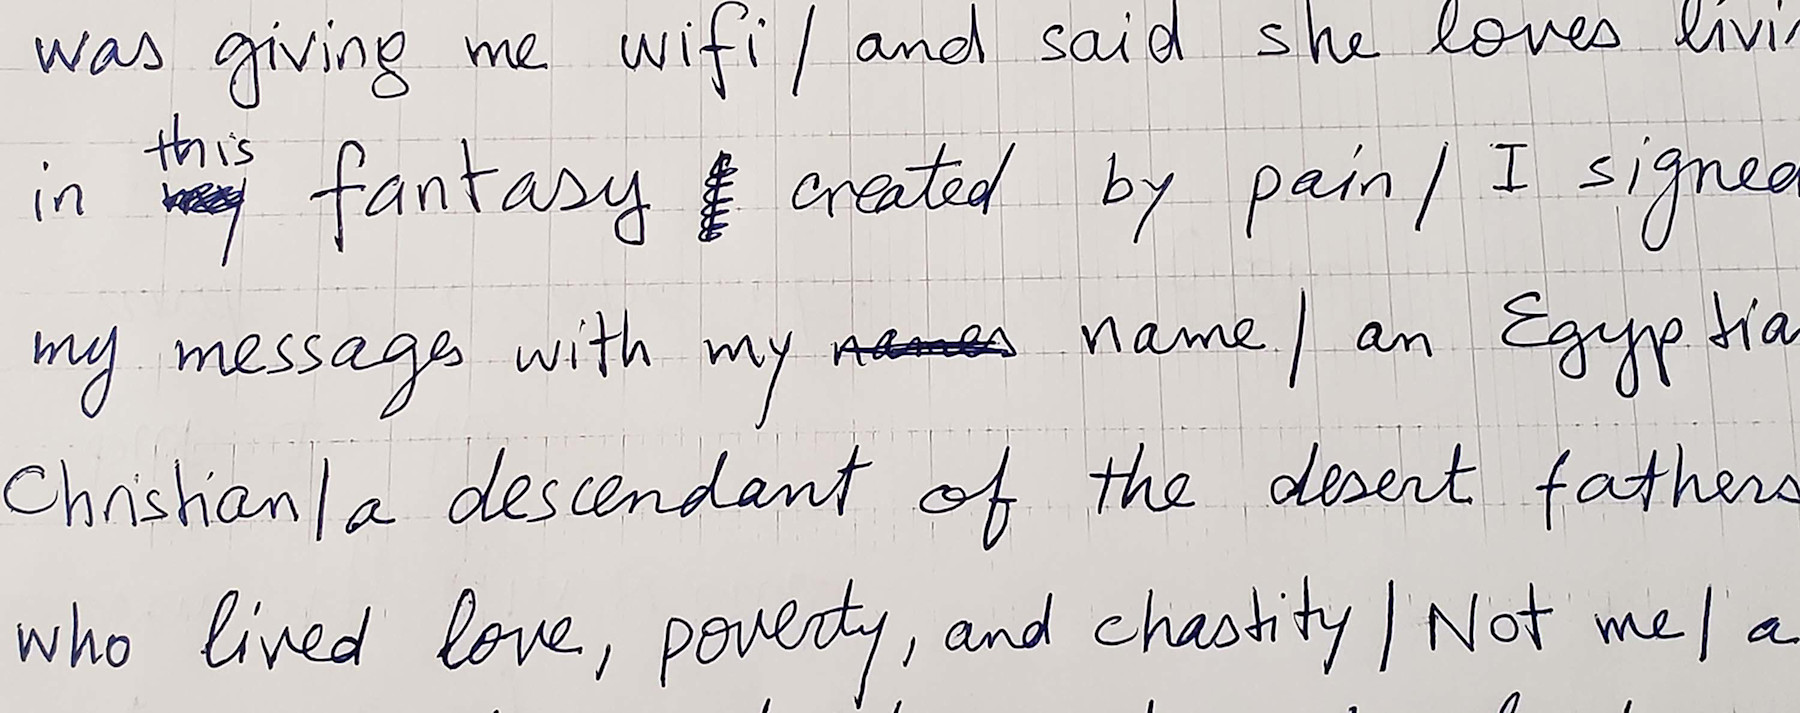 was giving me wifi / and said she loves livin
in this fantasy created by pain / I signed
my messages with my names name / an Egyptia
Christian / a descendant of the desert fathers
who lived love, poverty, and chastity / Not me / a